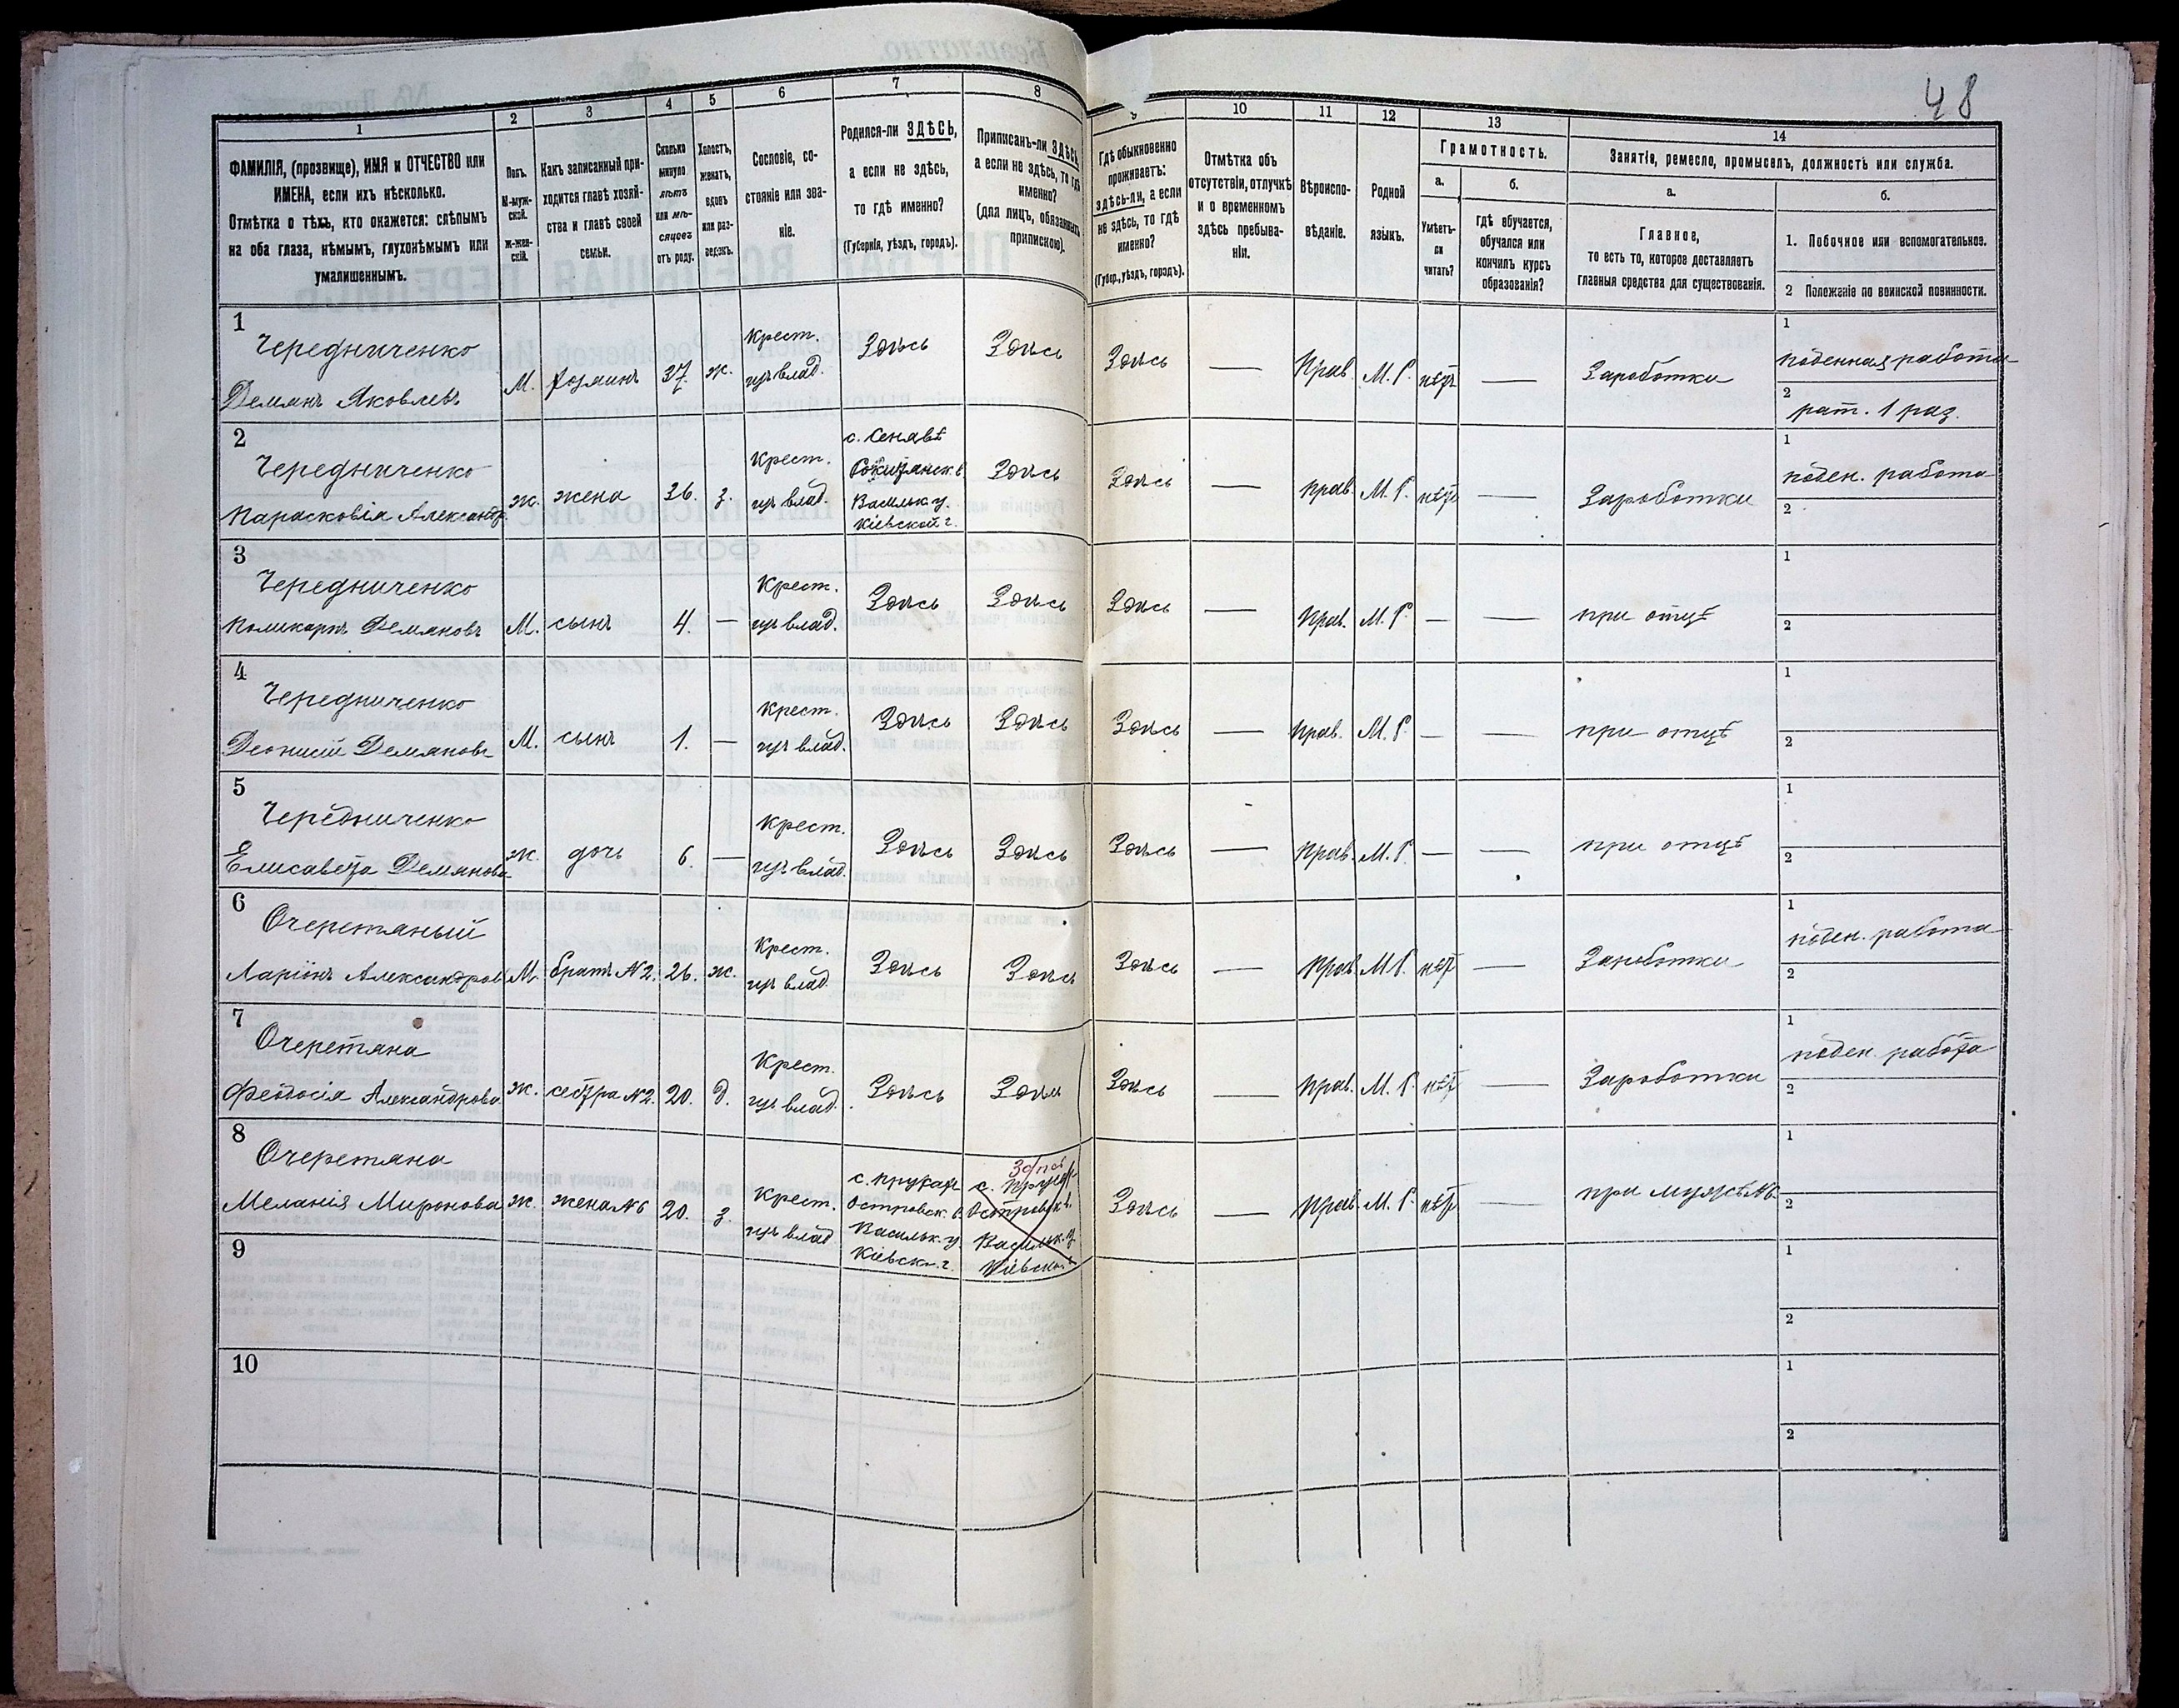 48
1 2 3 4 5 6 7 8 9 10 11 12 13 14
ФАМИЛІЯ, (прозвище), ИМЯ и ОТЧЕСТВО или
ИМЕНА, если ихъ нѣсколько.
Отмѣтка о тѣхъ, кто окажется: слѣпымъ
на оба глаза, нѣмымъ, глухонѣмымъ или
умалишеннымъ.
Полъ.
М-муж-
ской.
Ж-жен-
скій.
Какъ записанный при-
ходится главѣ хозяй-
ства и главѣ своей
семьи.
Сколько
минуло
лѣтъ
или мѣ-
сяцевъ
отъ роду.
Холостъ,
женатъ,
вдовъ
или раз-
веденъ.
Сословіе, со-
стояніе или зва-
ніе.
Родился-ли ЗДѢСЬ,
а если не здѣсь,
то гдѣ именно?
(Губернія, уѣздъ, городъ).
Приписанъ-ли ЗДѢСЬ,
а если не здѣсь, то гдѣ
именно?
(для лицъ, обязанныхъ
припискою).
Гдѣ обыкновенно
проживаетъ:
здѣсь-ли, а если
не здѣсь, то гдѣ
именно?
(Губер., уѣздъ, городъ).
Отмѣтка объ
отсутствіи, отлучкѣ
и о временномъ
здѣсь пребыва-
ніи.
Вѣроиспо-
вѣданіе.
Родной
языкъ.
Грамотность.
а.
Умѣетъ-
ли
читать?
б.
Гдѣ обучается,
обучался или
кончилъ курсъ
образованія?
Занятіе, ремесло, промыселъ, должность или служба.
а.
Главное,
то есть то, которое доставляетъ
главныя средства для существованія.
б.
1. Побочное или вспомогательное.
2 Положеніе по воинской повинности.
1
Чередниченко
Демянъ Яковлевъ
М. хозяинъ 37. ж.
Крест.
изъ влад.
Здѣсь Здѣсь Здѣсь — Прав. М. Р. нѣтъ — Заработки
1
поденная работа
2
рат. 1 раз.
2
Чередниченко
Парасковія Александр.
ж. жена 36. з.
Крест.
изъ влад.
с. Сенявѣ
Рокитянск. в.
Васильк. у.
Кіевской г.
Здѣсь Здѣсь — прав. М. Р. нѣтъ — Заработки
1
поден. работа
2
3
Чередниченко
Поликарпъ Демяновъ
М. сынъ 4. —
Крест.
изъ влад.
Здѣсь Здѣсь Здѣсь — Прав. М. Р. — — при отцѣ
1
2
4
Чередниченко
Деонисій Демяновъ
М. сынъ 1. —
крест.
изъ влад.
Здѣсь Здѣсь Здѣсь — прав. М. Р. — — при отцѣ
1
2
5
Чередниченко
Елисавета Демянова
ж. дочь 6. —
крест.
изъ влад.
Здѣсь Здѣсь Здѣсь — прав. М. Р. — — при отцѣ
1
2
6
Очеретяный
Ларіонъ Александров
М. братъ №2. 26. ж.
Крест.
изъ влад.
Здѣсь Здѣсь Здѣсь — прав. М Р. нѣт — Заработки
1
поден. работа
2
7
Очеретяна
Феодосія Александрова
ж. сестра №2. 20. д.
Крест.
изъ влад.
Здѣсь Здѣсь Здѣсь — прав. М. Р. нѣт — Заработки
1
поден. работа
2
8
Очеретяна
Меланія Миронова
ж. жена №6 20. з.
Крест.
изъ влад
с.
Островск. в.
Васильк. у.
Кіевск. г.
Здѣсь
с.
Островск. в.
Васильк. у.
Кіевск. г.
Здѣсь — прав. М. Р. нѣт — при мужѣ №6
1
2
9
1
2
10
1
2